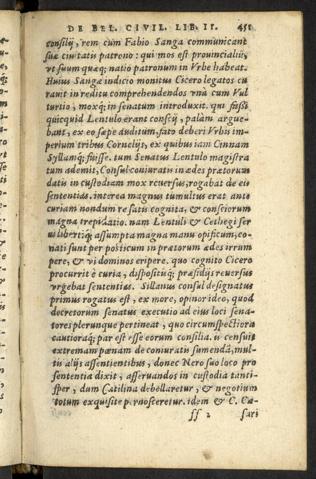 DE BEL. CIVIL. LIB. II. 451
consilij, rem cum Fabio Sanga communicant
suæ ciuitatis patrono: qui mos est prouincialiū,
vt suum quæq; natio patronum in Vrbe habeat.
Huius Sangæ indicio monitus Cicero legatos cu
rauit in reditu comprehendendos vnà cum Vul
turtio, moxq; in senatum introduxit. qui
quicquid Lentulo erant conscij, palàm argue-
bant, ex eo sæpe auditum, fato deberi Vrbis im-
perium tribus Cornelijs, ex quibus iam Cinnam
Syllamq; fuisse. tum Senatus Lentulo magistra
tum ademit, Consul coniuratis in ædes prætorum
datis in custodiam mox reuersus, rogabat de eis
sententias. interea magnus tumultus erat ante
curiam nondum re satis cognita, & consciorum
magna trepidatio. nam Lentuli & Cethegi ser
ui libertiq; assumpta magna manu opificum, co-
nati sunt per posticum in prætorum ædes irrum
pere, & vi dominos eripere. quo cognito Cicero
procurrit è curia, dispositisq; præsidijs reuersus
vrgebat sententias. Sillanus consul designatus
primus rogatus est, ex more, opinor ideo, quod
decretorum senatus executio ad eius loci sena-
tores plerunque pertineat, quo circumspectiora
cautioraq; par est esse eorum consilia. is censuit
extremam pœnam de coniuratis sumendā, mul-
tis alijs assentientibus, donec Nero suo loco pro
sententia dixit, asseruandos in custodia tanti-
sper, dum Catilina debellaretur, & negotium
totum exquisite p. rnosceretur. idem & C. Cæ-
ss 2 sari